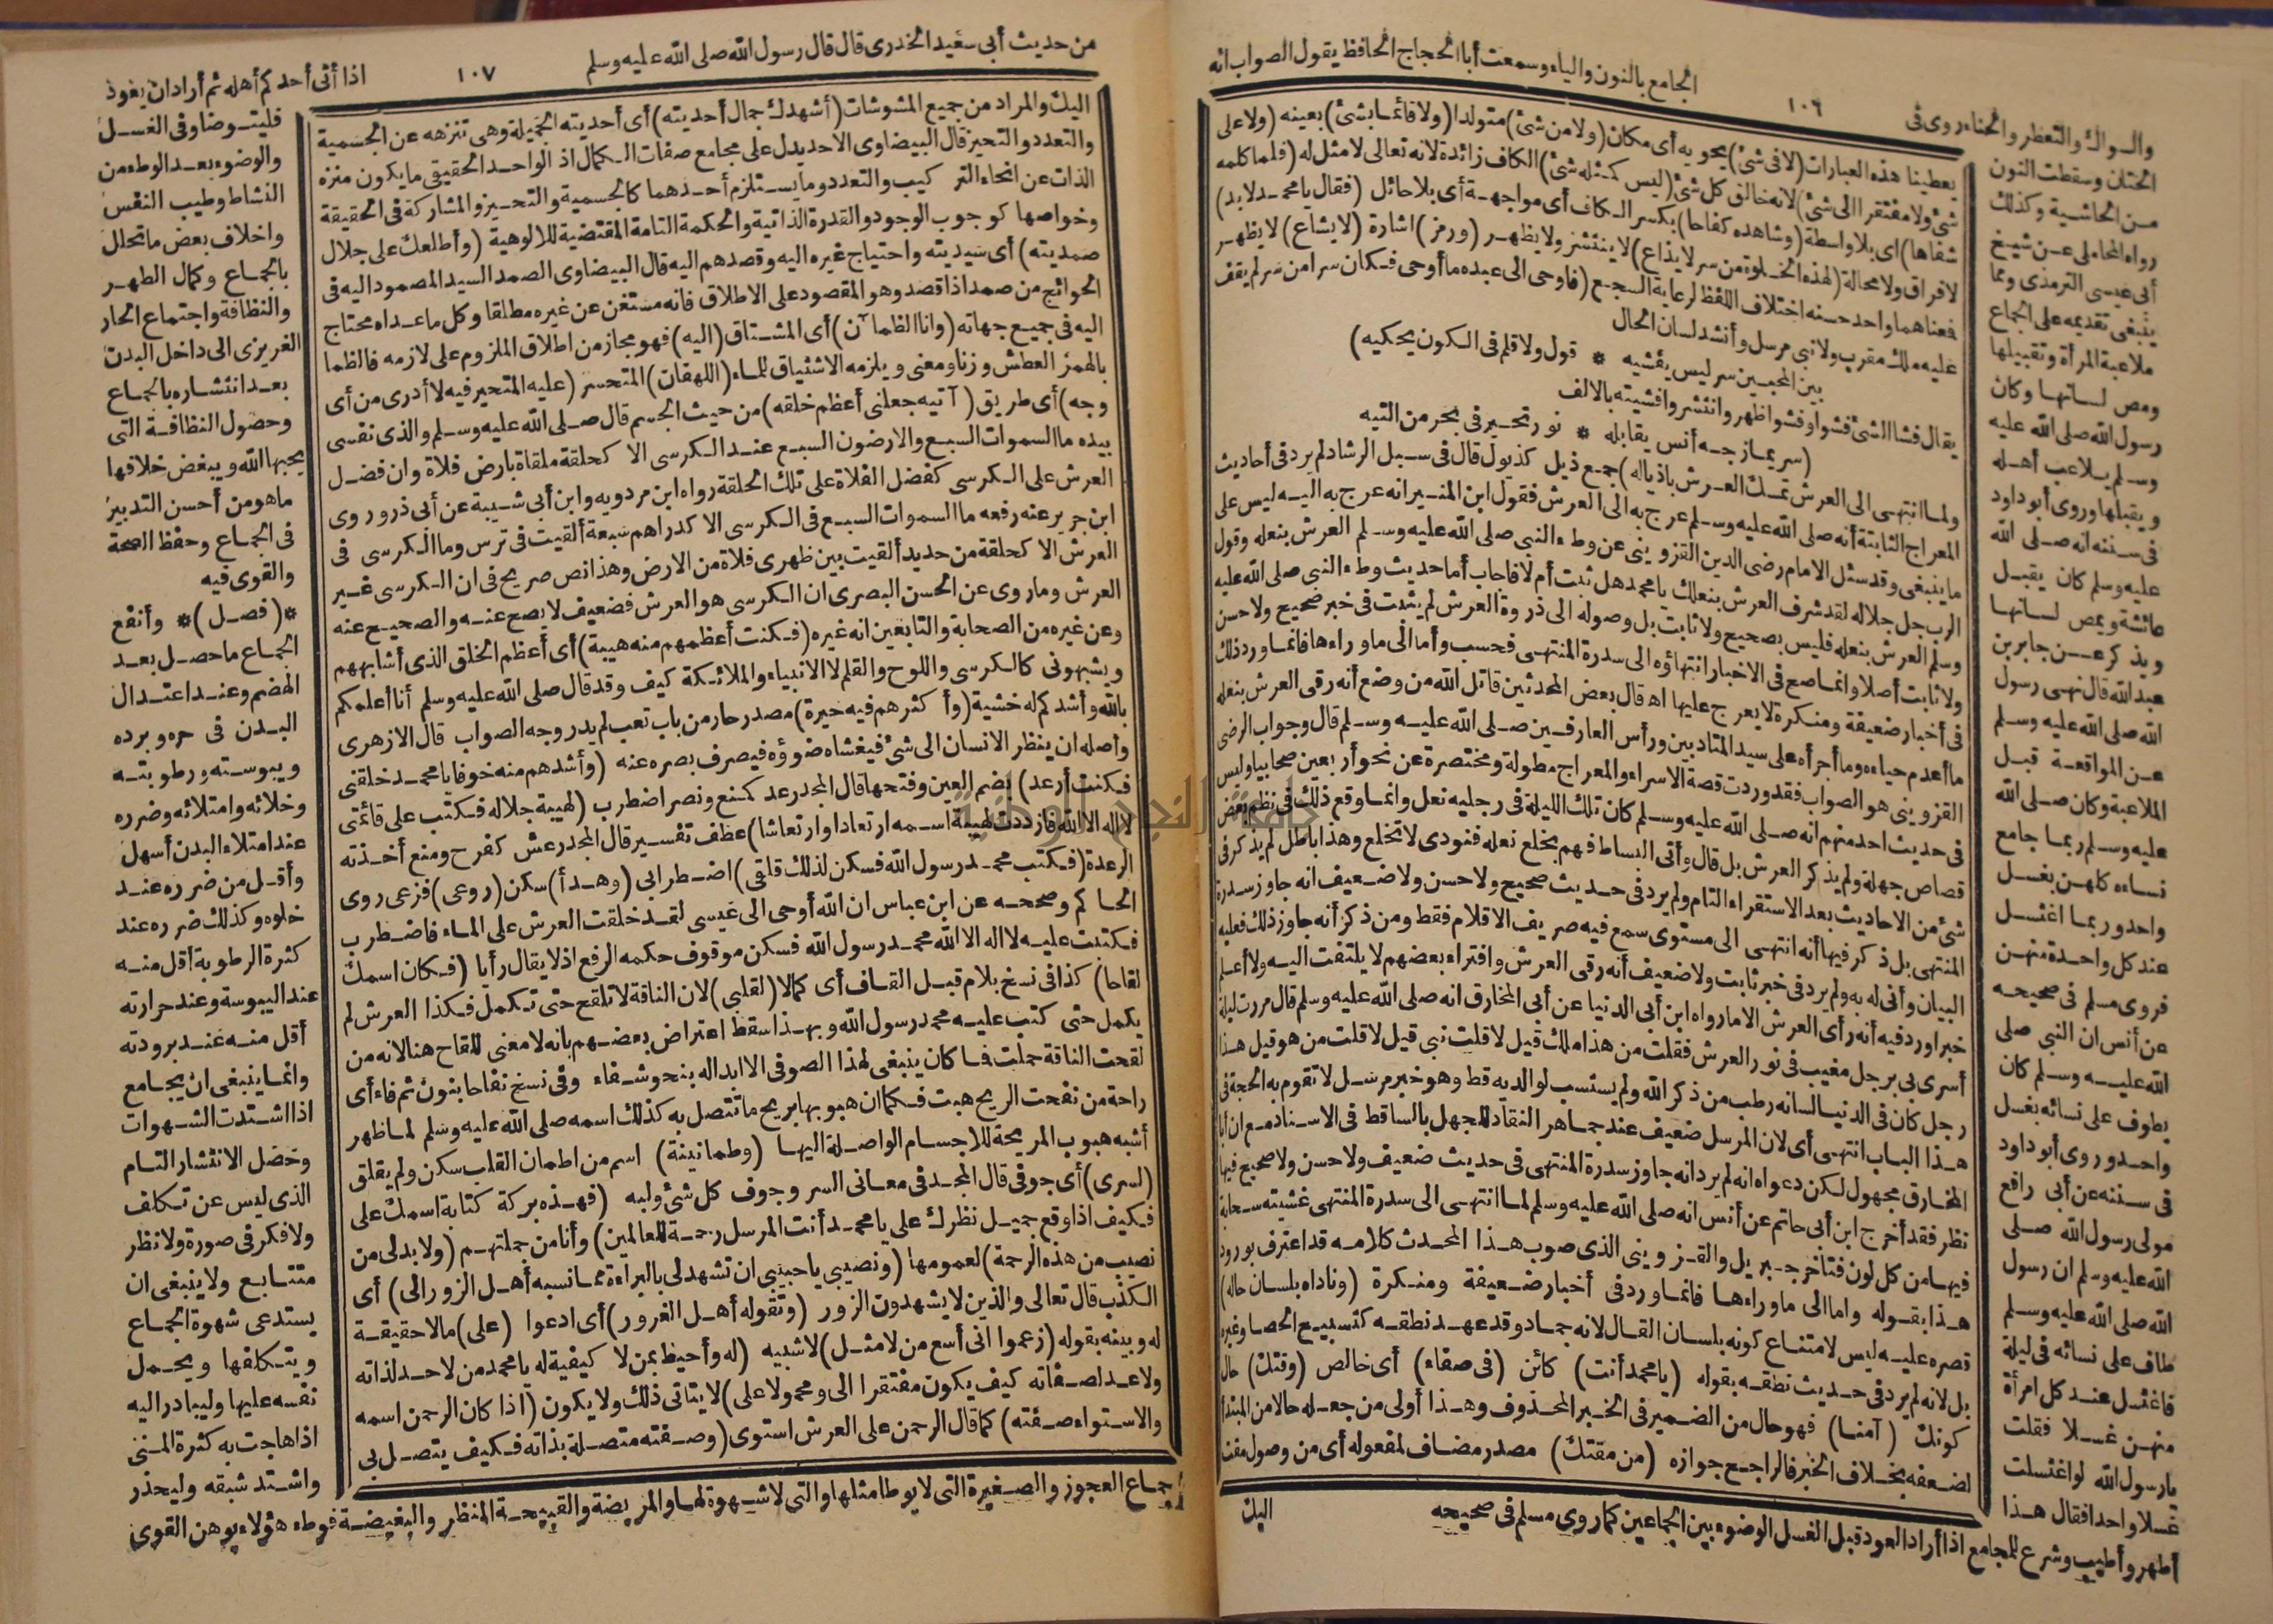 الجامع بالنون والياء وسمعت أبا الحجاج الحافظ يقول الصواب انه
١٠٦
والسواك والتعطر والحناء روى في
الختان وسقطت النون
من الحاشية وكذلك
رواه المحاملى عن شيخ
أبى عيسى الترمذى ومما
ينبغى تقديمه على الجماع
ملاعبة المرأة وتقبيلها
ومص لسانها وكان
رسول الله صلى الله عليه
وسلم يلاعب أهله
ويقبلها وروى أبو داود
فى سننه انه صلى الله
عليه وسلم كان يقبل
عائشة ويمص لسانها
ويذكر عن جابر بن
عبد الله قال نهى رسول
الله صلى الله عليه وسلم
عن المواقعة قبل
الملاعبة وكان صلى الله
عليه وسلم ربما جامع
نساءه كلهن بغسل
واحد وربما اغتسل
عند كل واحدة منهن
فروى مسلم فى صحيحه
عن أنس ان النبي صلى
الله عليه وسلم كان
يطوف على نسائه بغسل
واحد وروى أبو داود
فى سننه عن أبى رافع
مولى رسول الله صلى
الله عليه وسلم ان رسول
الله صلى الله عليه وسلم
طاف على نسائه فى ليلة
فاغتسل عند كل امرأة
منهن غسلا فقلت
يارسول الله لو اغتسلت
غسلا واحدا فقال هذا
أطهر وأطيب وشرع للمجامع اذا أراد العود قبل الغسل الوضوء بين الجماعين كما روى مسلم فى صحيحه
يعطينا هذه العبارات (لا فى شئ) يحويه أى مكان (ولا من شئ) متولدا (ولا قائما بشئ) بعينه (ولا على
شئ ولا مفتقرا الى شئ) لانه خالق كل شئ (ليس كمثله شئ) الكاف زائدة لانه تعالى لا مثل له (فلما كلمه
شفاها) اى بلا واسطة (وشاهده كفاحا) بكسر الكاف أى مواجهة أى بلا حائل (فقال يا محمد لا بد)
لا فراق ولا محالة (لهذه الخلوة من سر لا يذاع) لا ينتشر ولا يظهر (ورمز) اشارة (لا يشاع) لا يظهر
فمعناهما واحد حسنه اختلاف اللفظ لرعاية السجع (فاوحى الى عبده ما أوحى فكان سرا من سر لم يقف
عليه ملك مقرب ولا نبي مرسل وأنشد لسان الحال
بين المحبين سر ليس يفشيه * قول ولا قلم فى الكون يحكيه)
يقال فشا الشئ فشوا وفشوا ظهر وانتشر وافشيته بالالف
(سر يمازجه أنس يقابله * نور تحير في بحر من التيه
ولما انتهى الى العرش تمسك العرش باذياله) جمع ذيل كذيول قال فى سبل الرشاد لم يرد فى أحاديث
المعراج الثابتة أنه صلى الله عليه وسلم عرج به الى العرش فقول ابن المنير انه عرج به اليه ليس على
ما ينبغى وقد سئل الامام رضى الدين القزوينى عن وطء النبى صلى الله عليه وسلم العرش بنعله وقول
الرب جل جلاله لقد شرف العرش بنعلك يا محمد هل ثبت أم لا فاجاب أما حديث وطء النبى صلى الله عليه
وسلم العرش بنعله فليس بصحيح ولا ثابت بل وصوله الى ذروة العرش لم يثبت فى خبر صحيح ولا حسن
ولا ثابت أصلا وانما صح فى الاخبار انتهاؤه الى سدرة المنتهى فحسب وأما الى ما وراءها فانما ورد ذلك
فى أخبار ضعيفة ومنكرة لا يعرج عليها اه قال بعض المحدثين قاتل الله من وضع أنه رقى العرش بنعله
ما أعدم حياءه وما أجرأه على سيد المتادبين ورأس العارفين صلى الله عليه وسلم قال وجواب الرضى
القزوينى هو الصواب فقد وردت قصة الاسراء والمعراج مطولة ومختصرة عن نحو أربعين صحابيا وليس
فى حديث احد منهم انه صلى الله عليه وسلم كان تلك الليلة فى رجليه نعل وانما وقع ذلك فى نظم بعض
قصاص جهلة ولم يذكر العرش بل قال وأتى البساط فهم بخلع نعله فنودى لا تخلع وهذا باطل لم يذكر فى
شئ من الاحاديث بعد الاستقراء التام ولم يرد فى حديث صحيح ولا حسن ولا ضعيف انه جاوز سدرة
المنتهى بل ذكر فيها أنه انتهى الى مستوى سمع فيه صريف الاقلام فقط ومن ذكر أنه جاوز ذلك فعليه
البيان وأنى له به ولم يرد فى خبر ثابت ولا ضعيف أنه رقى العرش وافتراء بعضهم لا يلتفت اليه ولا أعلم
خبرا ورد فيه أنه رأى العرش الا ما رواه ابن أبى الدنيا عن أبى المخارق انه صلى الله عليه وسلم قال مررت ليلة
أسرى بى برجل مغيب فى نور العرش فقلت من هذا ملك قيل لا قلت نبى قيل لا قلت من هو قيل هذا
رجل كان فى الدنيا لسانه رطب من ذكر الله ولم يستسب لوالديه قط وهو خبر مرسل لا تقوم به الحجة فى
هذا الباب انتهى أى لان المرسل ضعيف عند جماهر النقاد للجهل بالساقط فى الاسناد مع ان أبا
المخارق مجهول لكن دعواه انه لم يرد انه جاوز سدرة المنتهى فى حديث ضعيف ولا حسن ولا صحيح فيها
نظر فقد أخرج ابن أبى حاتم عن أنس انه صلى الله عليه وسلم لما انتهى الى سدرة المنتهى غشيته سحابة
فيها من كل لون فتأخر جبريل والقزوينى الذى صوب هذا المحدث كلامه قد اعترف بورود
هذا بقوله واما الى ما وراءها فانما ورد فى أخبار ضعيفة ومنكرة (وناداه بلسان حاله)
قصره عليه ليس لامتناع كونه بلسان القال لانه جماد وقد عهد نطقه كتسبيح الحصا وغيره
بل لانه لم يرد فى حديث نطقه بقوله (يا محمد أنت) كائن (فى صفاء) أى خالص (وقتك) حال
كونك (آمنا) فهو حال من الضمير فى الخبر المحذوف وهذا أولى من جعله حالا من المبتدا
لضعفه بخلاف الخبر فالراجح جوازه (من مقتك) مصدر مضاف لمفعوله أى من وصول مقت
اليك
من حديث أبى سعيد الخدرى قال قال رسول الله صلى الله عليه وسلم
١٠٧
اذا أتى أحدكم أهله ثم أراد ان يعود
اليك والمراد من جميع المشوشات (أشهدك جمال أحديته) أى أحديته الجميلة وهى تنزهه عن الجسمية
والتعدد والتحيز قال البيضاوى الاحد يدل على مجامع صفات الكمال اذ الواحد الحقيقى ما يكون منزه
الذات عن انحاء التركيب والتعدد وما يستلزم أحدهما كالجسمية والتحيز والمشاركة فى الحقيقة
وخواصها كوجوب الوجود والقدرة الذاتية والحكمة التامة المقتضية للالوهية (وأطلعك على جلال
صمديته) أى سيديته واحتياج غيره اليه وقصدهم اليه قال البيضاوى الصمد السيد المصمود اليه فى
الحوائج من صمد اذا قصد وهو المقصود على الاطلاق فانه مستغن عن غيره مطلقا وكل ما عداه محتاج
اليه فى جميع جهاته (وانا الظمآن) أى المشتاق (اليه) فهو مجاز من اطلاق الملزوم على لازمه فالظما
بالهمز العطش وزنا ومعنى ويلزمه الاشتياق للماء (اللهفان) المتحسر (عليه المتحير فيه لا أدرى من أى
وجه) أى طريق (آتيه جعلنى أعظم خلقه) من حيث الجسم قال صلى الله عليه وسلم والذى نفسى
بيده ما السموات السبع والارضون السبع عند الكرسى الا كحلقة ملقاة بارض فلاة وان فضل
العرش على الكرسى كفضل الفلاة على تلك الحلقة رواه ابن مردويه وابن أبى شيبة عن أبى ذر وروى
ابن جرير عنه رفعه ما السموات السبع فى الكرسى الا كدراهم سبعة ألقيت فى ترس وما الكرسى فى
العرش الا كحلقة من حديد ألقيت بين ظهرى فلاة من الارض وهذا نص صريح فى ان الكرسى غير
العرش وما روى عن الحسن البصرى ان الكرسى هو العرش فضعيف لا يصح عنه والصحيح عنه
وعن غيره من الصحابة والتابعين انه غيره (فكنت أعظمهم منه هيبة) أى أعظم الخلق الذى أشابههم
ويشبهونى كالكرسى واللوح والقلم لا الانبياء والملائكة كيف وقد قال صلى الله عليه وسلم أنا أعلمكم
بالله وأشدكم له خشية (وأكثرهم فيه حيرة) مصدر حار من باب تعب لم يدر وجه الصواب قال الازهرى
وأصله ان ينظر الانسان الى شئ فيغشاه ضوؤه فيصرف بصره عنه (وأشدهم منه خوفا يا محمد خلقنى
فكنت أرعد) بضم العين وفتحها قال المجد رعد كمنع ونصر اضطرب (لهيبة جلاله فكتب على قائمتى
لا اله الا الله فازددت لهيبة اسمه ارتعادا وارتعاشا) عطف تفسير قال المجد رعش كفرح ومنع أخذته
الرعدة (فكتب محمد رسول الله فسكن لذلك قلقى) اضطرابى (وهدأ) سكن (روعى) فزعى روى
الحاكم وصححه عن ابن عباس ان الله أوحى الى عيسى لقد خلقت العرش على الماء فاضطرب
فكتبت عليه لا اله الا الله محمد رسول الله فسكن موقوف حكمه الرفع اذ لا يقال رأيا (فكان اسمك
لقاحا) كذا فى نسخ بلام قبل القاف أى كمالا (لقلبى) لان الناقة لا تلقح حتى تكمل فكذا العرش لم
يكمل حتى كتب عليه محمد رسول الله وبهذا سقط اعتراض بعضهم بانه لا معنى للقاح هنا لانه من
لقحت الناقة حملت فما كان ينبغى لهذا الصوفى الا ابداله بنحو شفاء وفى نسخ نفاحا بنون ثم فاء أى
راحة من نفحت الريح هبت فكما ان هبوبها يريح ما تتصل به كذلك اسمه صلى الله عليه وسلم لما ظهر
أشبه هبوب المريحة للاجسام الواصلة اليها (وطمانينة) اسم من اطمان القلب سكن ولم يقلق
(لسرى) أى جوفى قال المجد فى معانى السر وجوف كل شئ ولبه (فهذه بركة كتابة اسمك على
فكيف اذا وقع جميل نظرك على يا محمد أنت المرسل رحمة للعالمين) وأنا من جملتهم (ولا بد لى من
نصيب من هذه الرحمة) لعمومها (ونصيبي يا حبيبي ان تشهد لى بالبراءة مما نسبه أهل الزور الى) أى
الكذب قال تعالى والذين لا يشهدون الزور (وتقوله أهل الغرور) أى ادعوا (على) ما لا حقيقة
له وبينه بقوله (زعموا انى أسع من لا مثل) لا شبيه (له وأحيط بمن لا كيفية له يا محمد من لا حد لذاته
ولا عد لصفاته كيف يكون مفتقرا الى ومحمولا على) لا يتاتى ذلك ولا يكون (اذا كان الرحمن اسمه
والاستواء صفته) كما قال الرحمن على العرش استوى (وصفته متصلة بذاته فكيف يتصل بى
فليتوضا وفى الغسل
والوضوء بعد الوطء من
النشاط وطيب النفس
واخلاف بعض ما تحلل
بالجماع وكمال الطهر
والنظافة واجتماع الحار
الغريزى الى داخل البدن
بعد انتشاره بالجماع
وحصول النظافة التى
يحبها الله ويبغض خلافها
ما هو من أحسن التدبير
فى الجماع وحفظ الصحة
والقوى فيه
*(فصل)* وأنفع
الجماع ما حصل بعد
الهضم وعند اعتدال
البدن فى حره وبرده
ويبوسته ورطوبته
وخلائه وامتلائه وضرره
عند امتلاء البدن أسهل
وأقل من ضرره عند
خلوه وكذلك ضرره عند
كثرة الرطوبة أقل منه
عند اليبوسة وعند حرارته
أقل منه عند برودته
وانما ينبغى ان يجامع
اذا اشتدت الشهوات
وحصل الانتشار التام
الذى ليس عن تكلف
ولا فكر فى صورة ولا نظر
متتابع ولا ينبغى ان
يستدعى شهوة الجماع
ويتكلفها ويحمل
نفسه عليها وليبادر اليه
اذا هاجت به كثرة المنى
واشتد شبقه وليحذر
جماع العجوز والصغيرة التى لا يوطا مثلها والتى لا شهوة لها والمريضة والقبيحة المنظر والبغيضة فوطء هؤلاء يوهن القوى
جامعة النجاح الوطنية